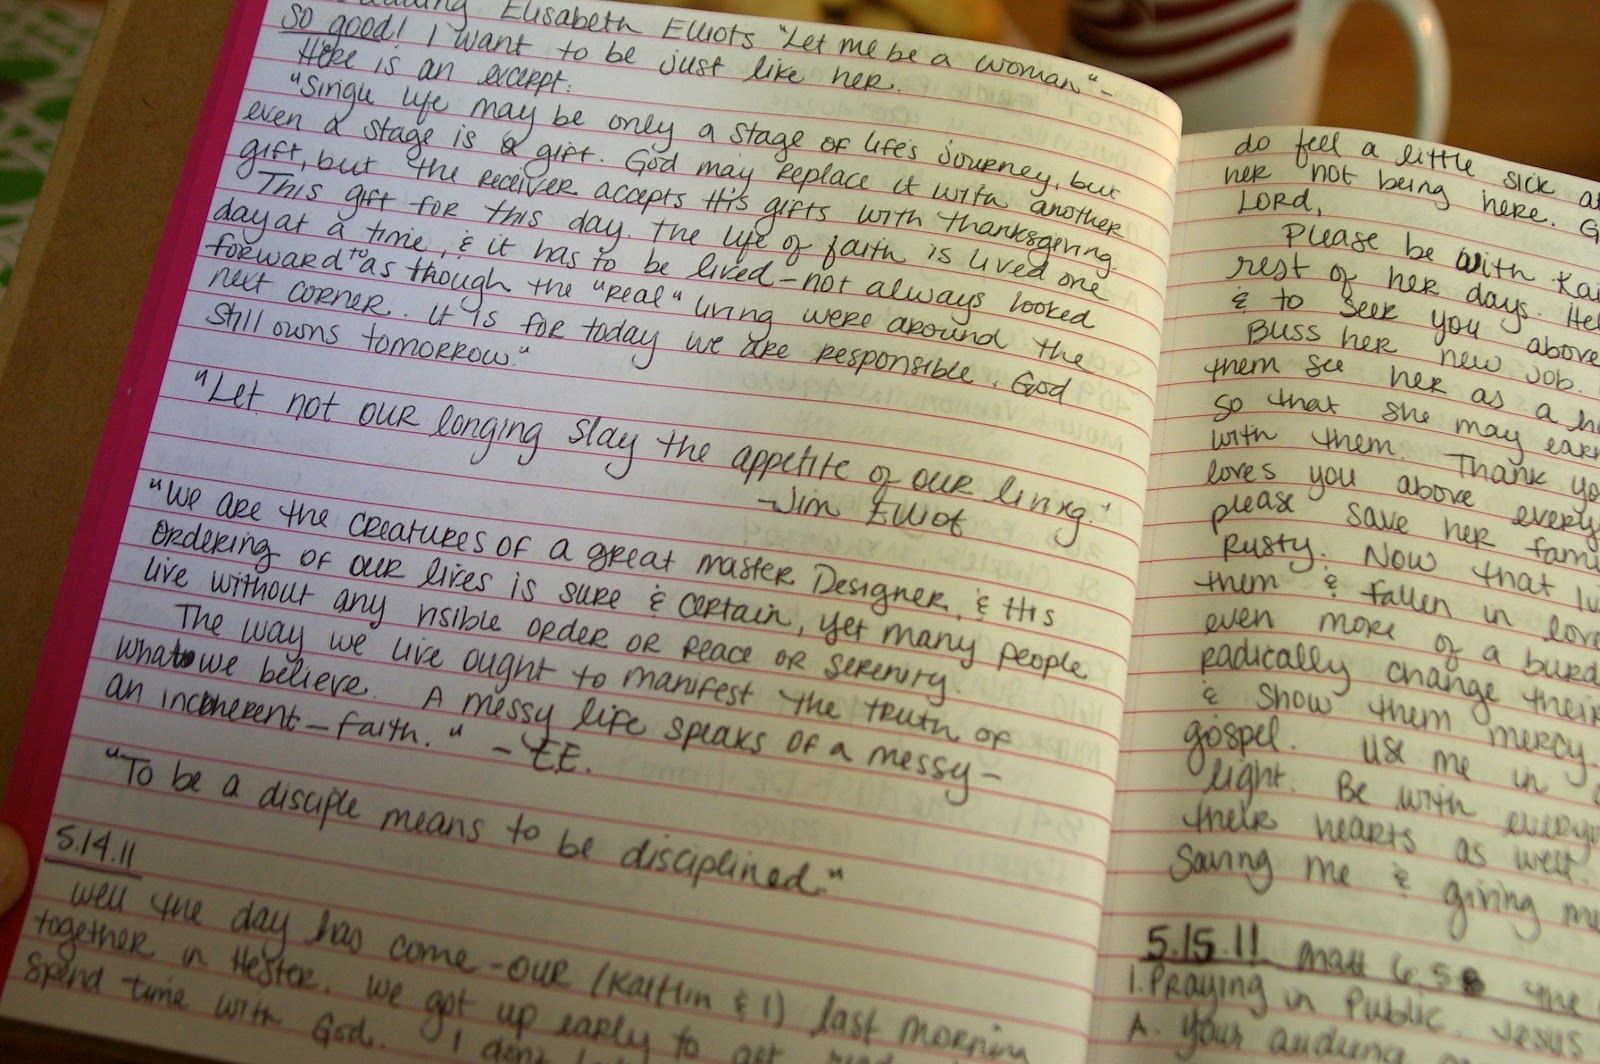 Elisabeth Elliots "Let me be a woman" -
so good! I want to be just like her.
Here is an excerpt:
"Single life may be only a stage of life's journey, but
even a stage is a gift. God may replace it with another
gift, but the receiver accepts His gifts with thanksgiving.
This gift for this day. The life of faith is lived one
day at a time, & it has to be lived - not always looked
forward to as though the "real" living were around the
next corner. It is for today we are responsible. God
still owns tomorrow."
"Let not our longing slay the appetite of our living."
- Jim Elliot
"We are the creatures of a great master Designer, & His
ordering of our lives is sure & certain, yet many people
live without any visible order or peace or serenity.
The way we live ought to manifest the truth of
what we believe. A messy life speaks of a messy -
an incoherent - faith." - E.E.
"To be a disciple means to be disciplined."
5.14.11
Well the day has come - our (Kaitlin & I) last morning
together in Hester. We got up early to get
spend time with God. I
do feel a little sick
her not being here.
Lord,
Please be with
rest of her days.
& to seek you above
Bless her new job.
them see her as a
so that she may earn
with them. Thank
loves you above
please save her
Rusty. Now that
them & fallen in love
even more of a
radically change their
& show them mercy.
gospel. Use me in
light. Be with
their hearts as well.
Saving me & giving me
5.15.11 Matt 6.5 The
1. Praying in Public. Jesus
A. Your